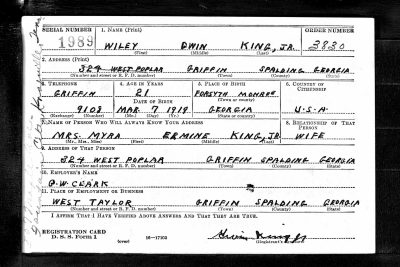 SERIAL NUMBER 1. NAME (Print) ORDER NUMBER
1989 WILEY DWIN KING, JR. 3830
(First) (Middle) (Last)
2. ADDRESS (Print)
324 WEST POPLAR GRIFFIN SPALDING GEORGIA
(Number and street or R. F. D. number) (Town) (County) (State)
3. TELEPHONE 4. AGE IN YEARS 5. PLACE OF BIRTH 6. COUNTRY OF CITIZENSHIP
GRIFFIN 21 FORSYTH MONROE
DATE OF BIRTH (Town or county)
9108 MAR. 7 1919 GEORGIA U.S.A
(Exchange) (Number) (Mo.) (Day) (Yr.) (State or country)
7. NAME OF PERSON WHO WILL ALWAYS KNOW YOUR ADDRESS 8. RELATIONSHIP OF THAT PERSON
MRS. MYRA ERMINE KING, JR WIFE
(Mr., Mrs., Miss) (First) (Middle) (Last)
9. ADDRESS OF THAT PERSON
324 WEST POPLAR GRIFFIN SPALDING GEORGIA
(Number and street or R. F. D. number) (Town) (County) (State)
10. EMPLOYER'S NAME
O.W. CLARK
11. PLACE OF EMPLOYMENT OR BUSINESS
WEST TAYLOR GRIFFIN SPALDING GEORGIA
(Number and street or R. F. D. number) (Town) (County) (State)
I AFFIRM THAT I HAVE VERIFIED ABOVE ANSWERS AND THAT THEY ARE TRUE.
REGISTRATION CARD
D. S. S. Form 1 (over) 16—17105
(Registrant's signature)